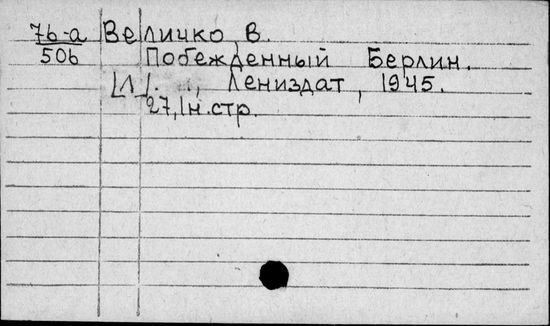 76-а Величко, В.
506 Побежденный Берлин.
[Л]. , Лениздат, 1945.
27,1н.стр.